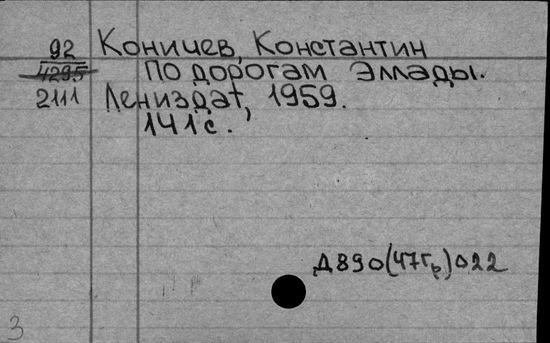 92 Коничев, Константин
4295 По дорогам Эллады.
2111 Лениздат, 1959.
141 с.
Д890(47Гр)022
3